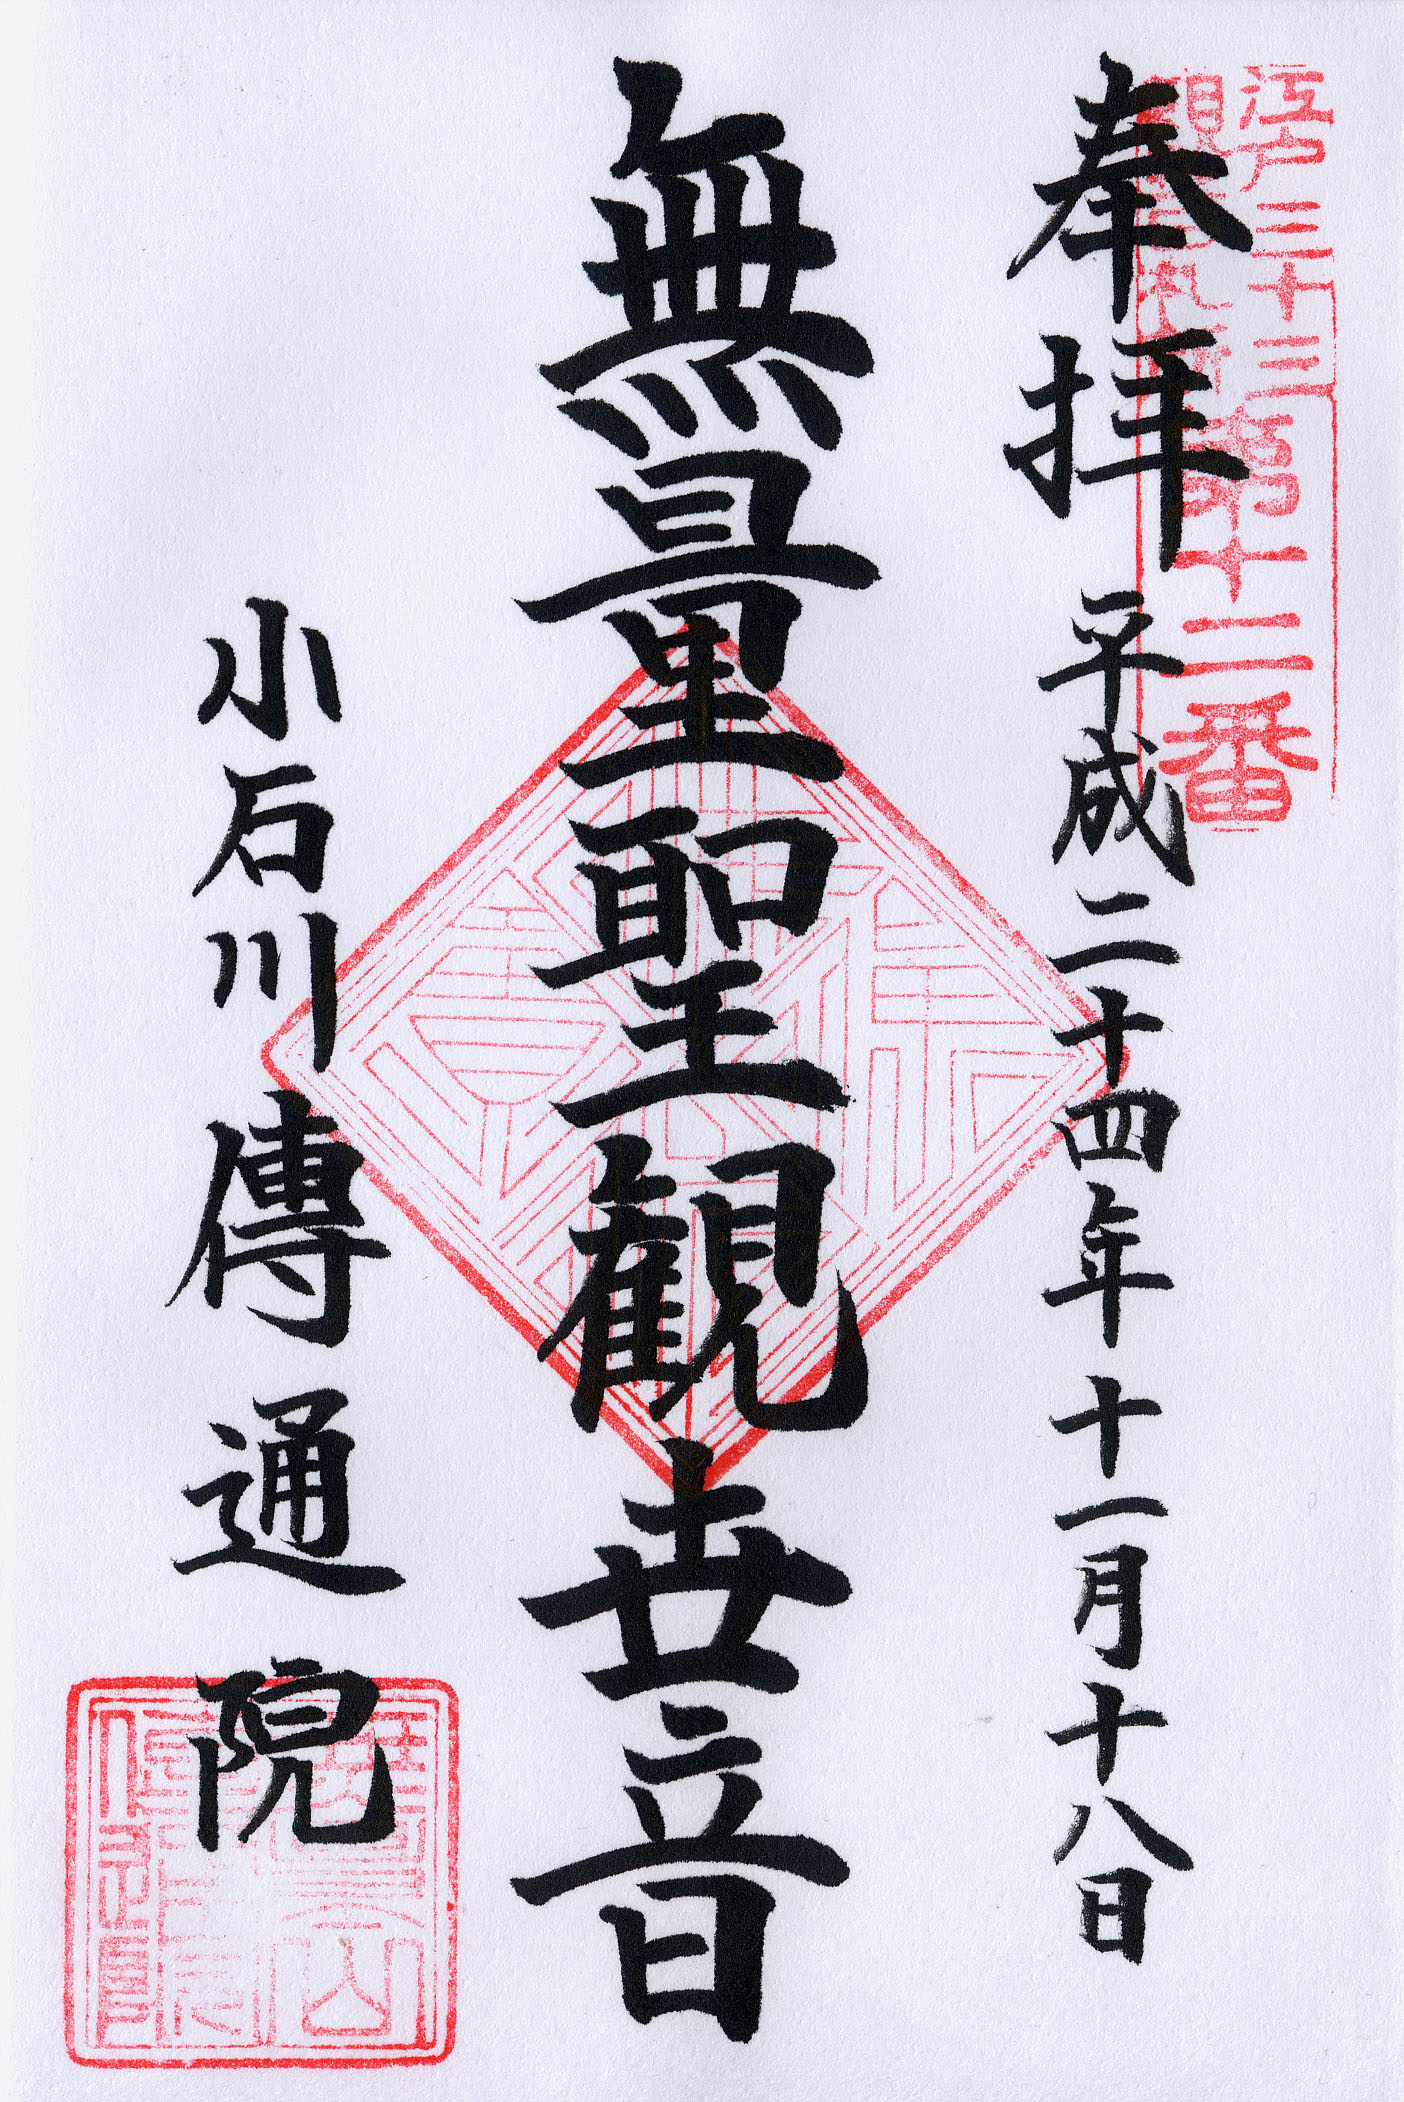 江戸三十三
観音札所
第十二番
奉拝 平成二十四年十一月十八日
無量聖観世音
小石川傳通院